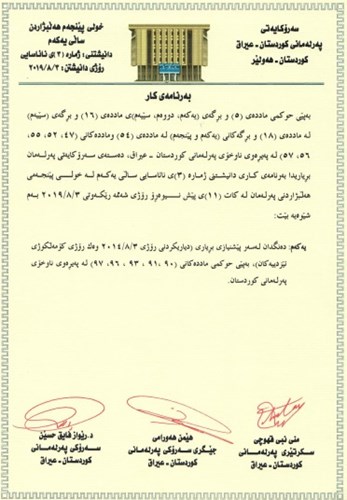 سەرۆکایەتی
پەرلەمانی کوردستان - عیراق
کوردستان - هەولێر
خولی پێنجەم هەڵبژاردن
ساڵی یەکەم
دانیشتنی: ژمارە (٣)ی نائاسایی
ڕۆژی دانیشتن: ٢٠١٩/٨/٣
بەرنامەی کار
بەپێی حوکمی ماددەی (٥) و بڕگەی (یەکەم، دووەم، سێیەم)ی ماددەی (١٦) و بڕگەی (سێیەم)
لە ماددەی (١٨) و بڕگەکانی (یەکەم و پێنجەم) لە ماددەی (٥٤) وماددەکانی (٤٧، ٥٢، ٥٥،
٥٦، ٥٧) لە پەیڕەوی ناوخۆی پەرلەمانی کوردستان - عیراق، دەستەی سەرۆکایەتی پەرلەمان
بڕیاریدا بەرنامەی کاری دانیشتنی ژمارە (٣)ی نائاسایی ساڵی یەکەم لە خولی پێنجەمی
هەڵبژاردنی پەرلەمان لە کات (١١)ی پێش نیوەڕۆی ڕۆژی شەممە ڕێکەوتی ٢٠١٩/٨/٣ بەم
شێوەیە بێت:
یەکەم: دەنگدان لەسەر پێشنیازی بڕیاری (دیاریکردنی ڕۆژی ٢٠١٤/٨/٣ وەك ڕۆژی کۆمەڵکوژی
ئێزدییەکان)، بەپێی حوکمی ماددەکانی (٩٠، ٩١، ٩٣، ٩٦، ٩٧) لە پەیڕەوی ناوخۆی
پەرلەمانی کوردستان.
منی نبی قهوچی
سکرتێری پەرلەمانی
کوردستان - عیراق
هێمن هەورامی
جێگری سەرۆکی پەرلەمانی
کوردستان - عیراق
د.ڕێواز فایق حسێن
سەرۆکی پەرلەمانی
کوردستان - عیراق